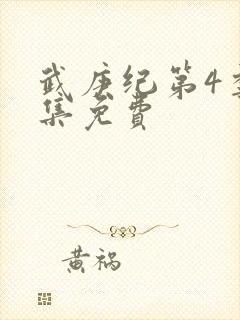 武庚纪第4季
集免费
黄祸